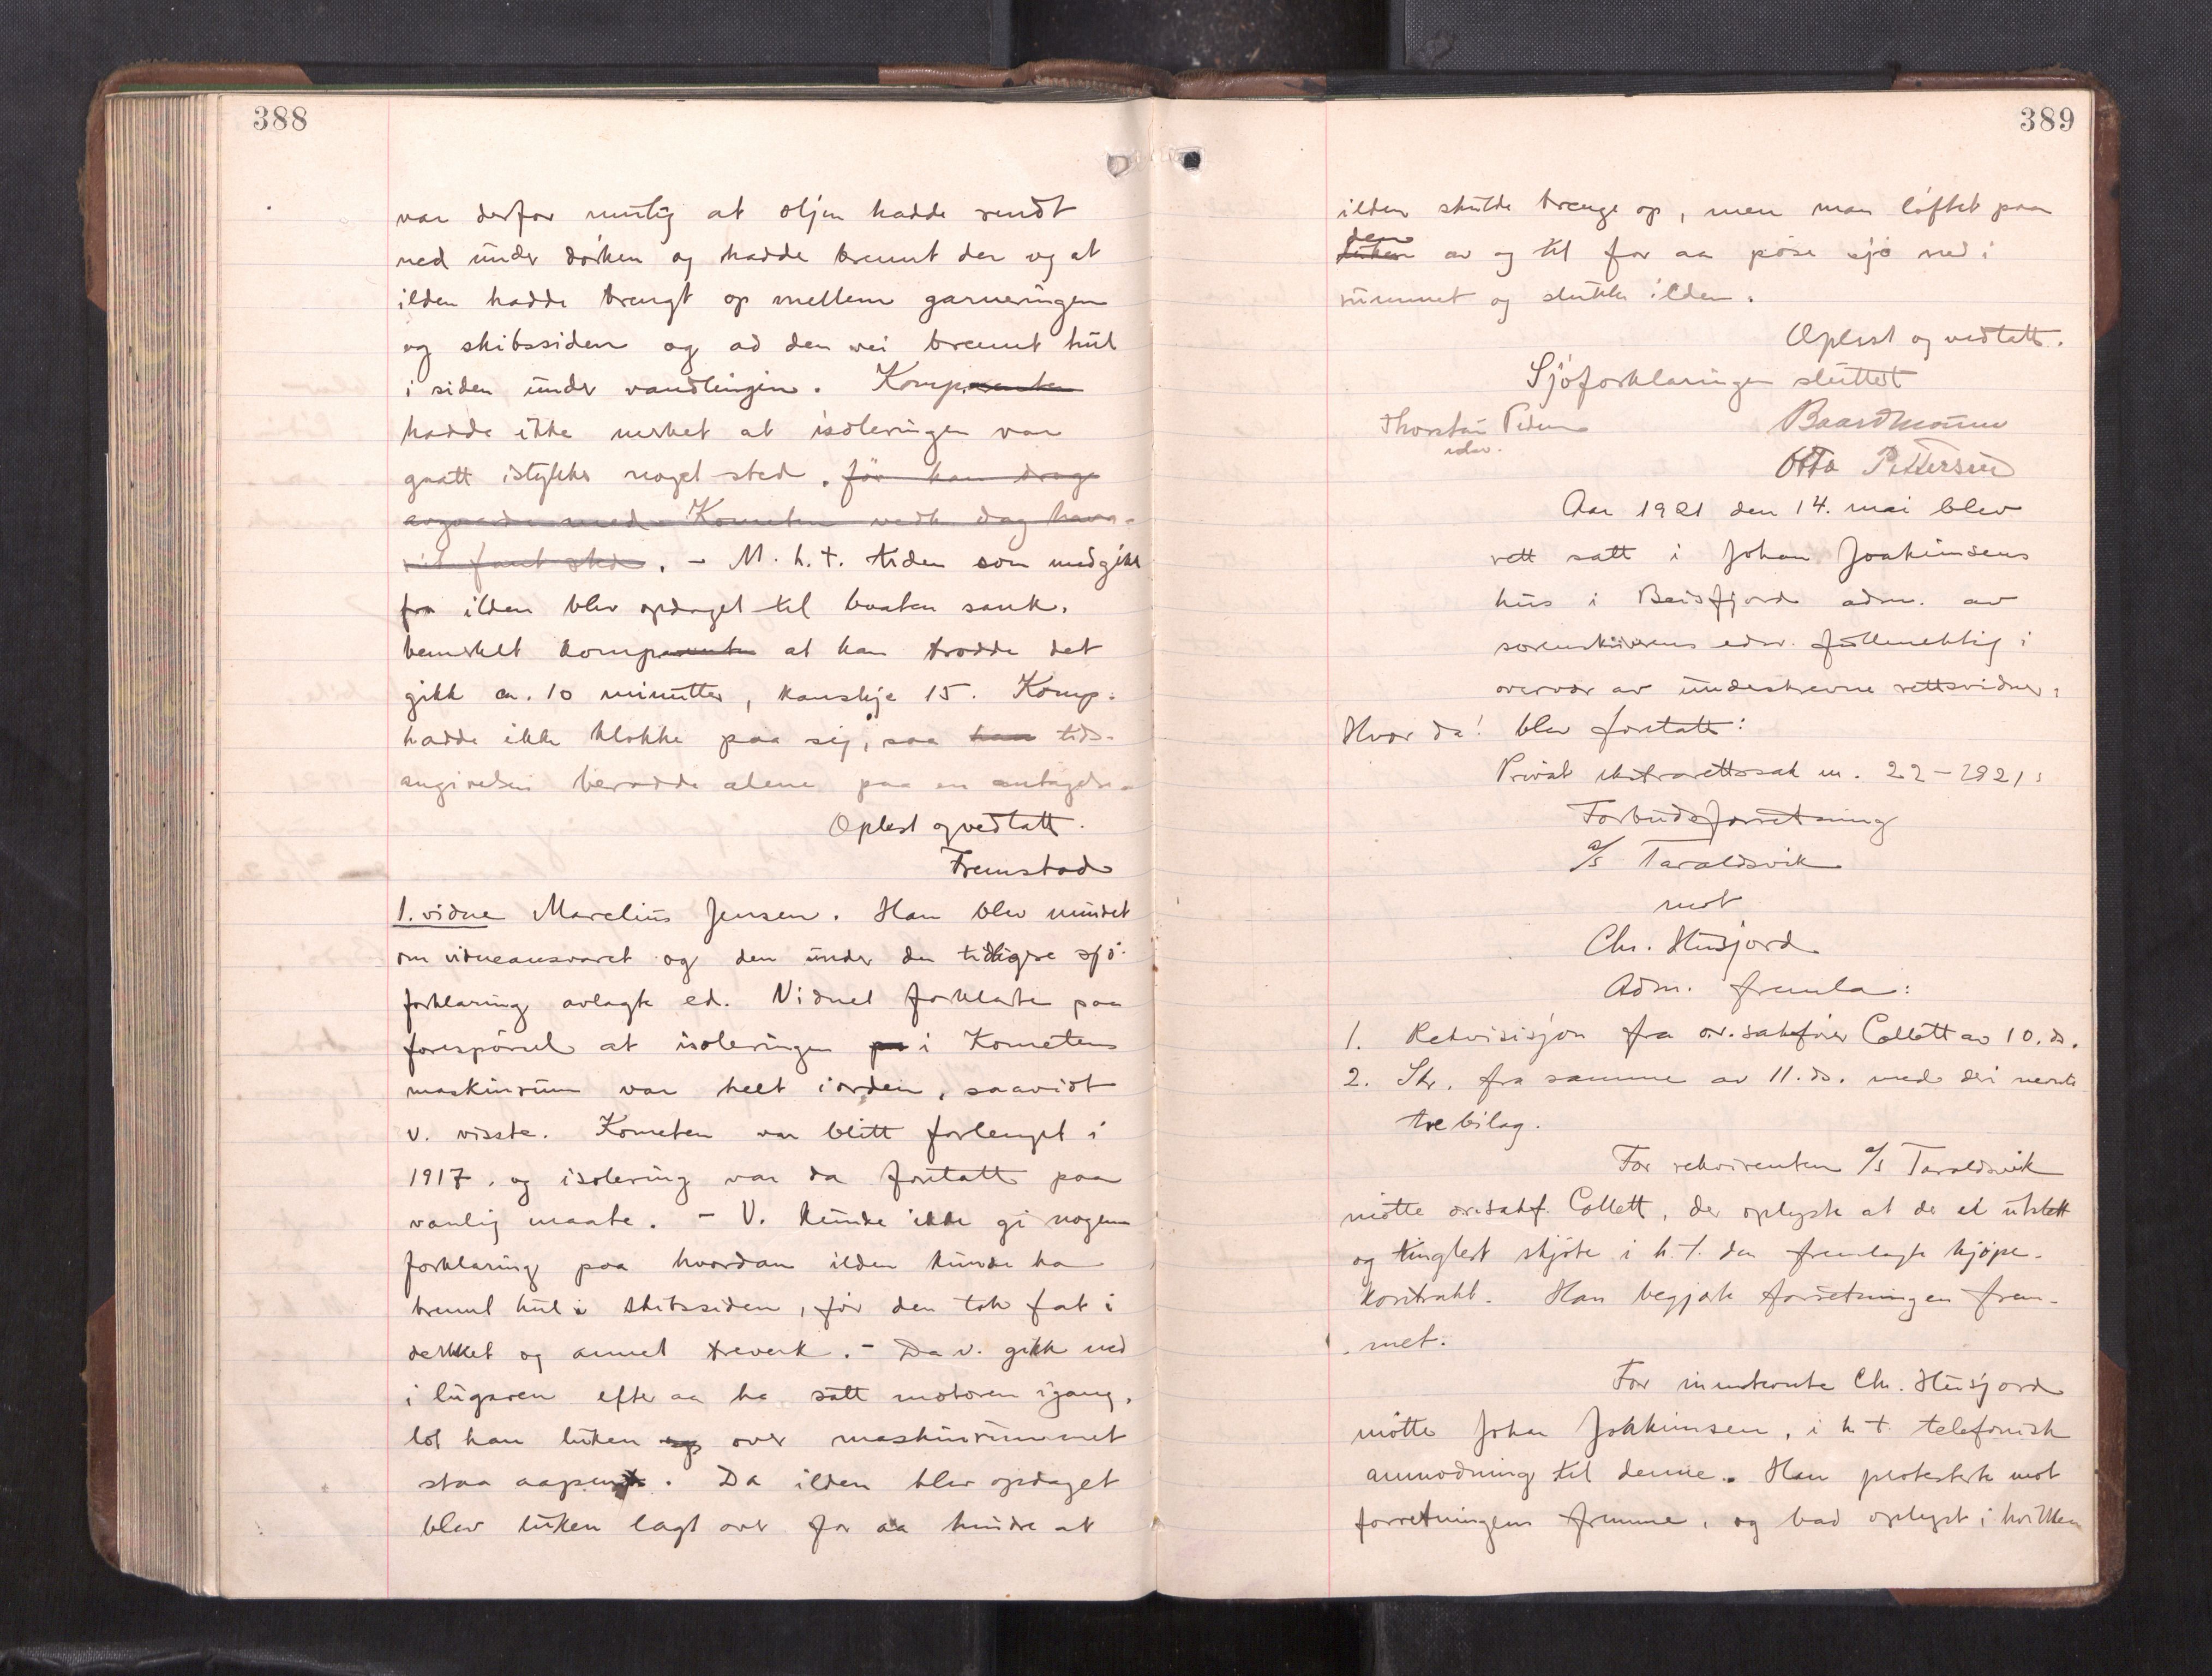 388
var derfor mulig at oljen hadde rendt
ned under dørken og hadde brennt der og at
ilden hadde trengt op mellem garneringen
og skibssiden og ad den vei brennt hul
i siden under vandlinjen. Komparenten
hadde ikke merket at isoleringen var
gaatt istykker noget sted, før han drog
avgaarde med Kometen vedk. dag hava-
riet fant sted. - M.h.t. tiden som medgikk
fra ilden blev opdaget til baaten sank,
bemerket komparenten at han trodde det
gikk ca. 10 minutter, kanskje 15. Komp.
hadde ikke klokke paa sig, saa han tids-
angivelsen berodde alene paa en antagelse.
Oplest og vedtatt.
Fremstod
1. vidne Marelius Jensen. Han blev mindet
om vidneansvaret og den under den tidligere sjø-
forklaring avlagte ed. Vidnet forklarte paa
forespørsel at isoleringen paa i Kometens
maskinrum var helt iorden, saavidt
v. visste. Kometen var blitt forlenget i
1917, og isolering var da foretatt paa
vanlig maate. - V. kunde ikke gi nogen
forklaring paa hvordan ilden kunde ha
brennt hul i skibssiden, før den tok fat i
dekket og annet treverk. - Da v. gikk ned
i lugaren efter aa ha satt motoren igang,
lot han luken og over maskinrummet
staa aapent. Da ilden blev opdaget
blev luken lagt over for aa hindre at
389
ilden skulde trenge op, men man løftet paa
den
luken av og til for aa pøse sjø ned i
rummet og slukke ilden.
Oplest og vedtatt.
Sjøforklaringen sluttet
Baardmoun
Otto Pettersen
Aar 1921 den 14. mai blev
rett satt i Johan Joakimsens
hus i Beisfjord adm. av
sorenskriverens edsv. fullmektig i
overvær av undeskrevne rettsvidner.
Hvor da! blev foretatt:
Privat ekstrarettssak nr. 22-1921:
Forbudsforretning
a/s Taraldsvik
mot
Chr. Husjord
Adm. fremla:
1. Rekvisisjon fra o.r.sakfører Collett av 10. ds.
2. Skr. fra samme av 11. ds. med deri nevnte
tre bilag.
For rekvirenten a/s Taraldsvik
møtte o.r.sakf. Collett, der oplyste at der et utstett
og tinglest skjøte i h.t. den fremlagte kjøpe-
kontrakt. Han begjærte forretningen frem-
met.
For innstevnte Chr. Husjord
møtte Johan Joakimsen, i h.t. telefonisk
anmodning til denne. Han protesterte mot
forretningens fremme, og bad oplyst i hvilken